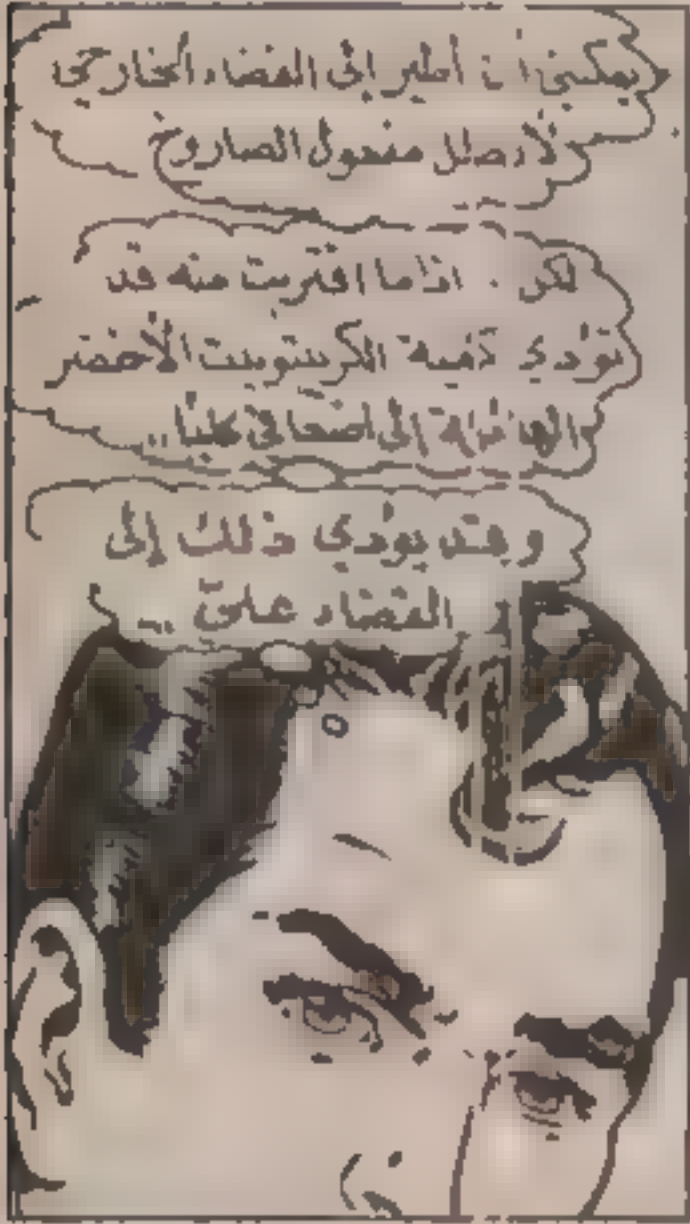 يمكنني أن أطير إلى الفضاء الخارجي
لأرصلل مفعول الصاروخ
لكن . اذا ما اقتربت منه قد
تؤدي كمية الكريبتونيت الأخضر
الهائلة إلى اضعافي كليا..
وقد يؤدي ذلك إلى
القضاء علي ..